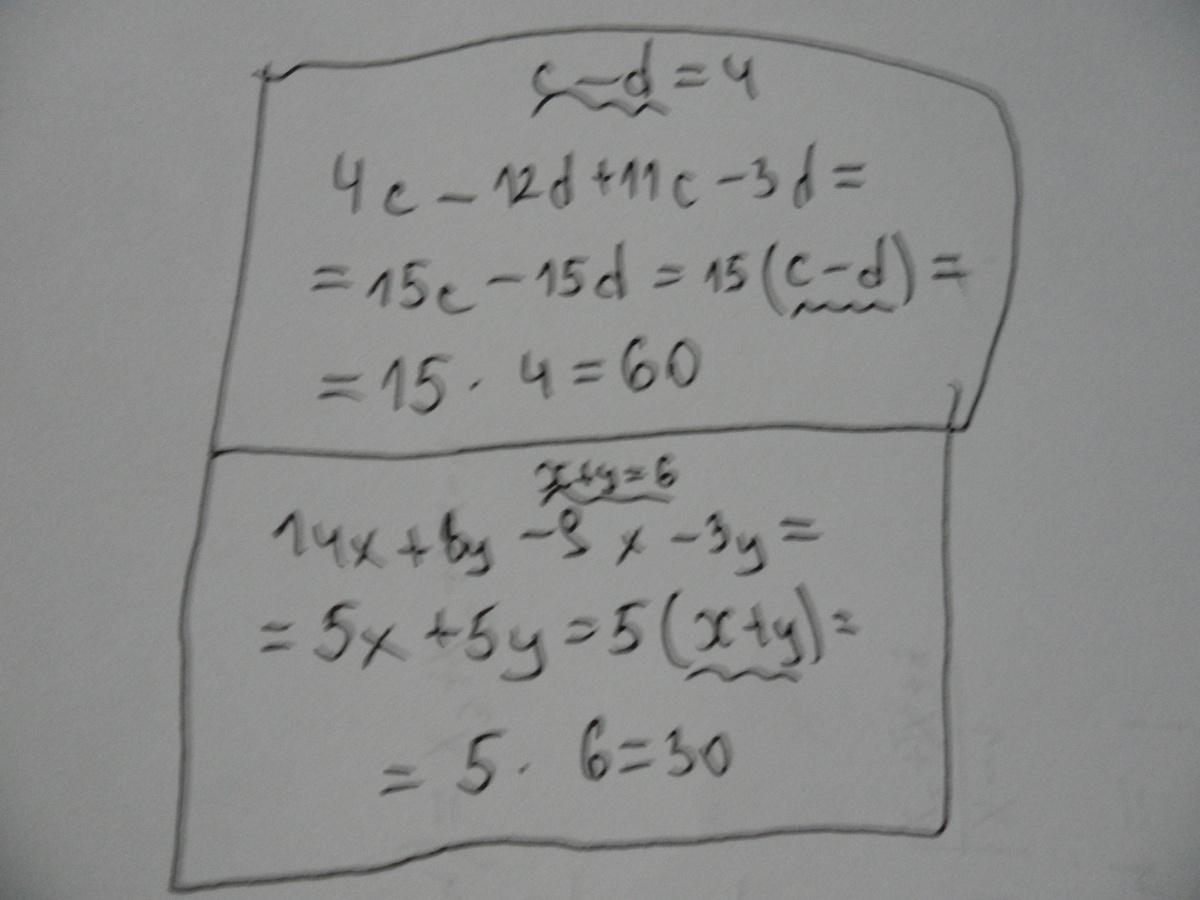 c-d=4
4c-12d+11c-3d=
=15c-15d=15(c-d)=
=15·4=60
x+y=6
14x+8y-9x-3y=
=5x+5y=5(x+y)=
=5·6=30